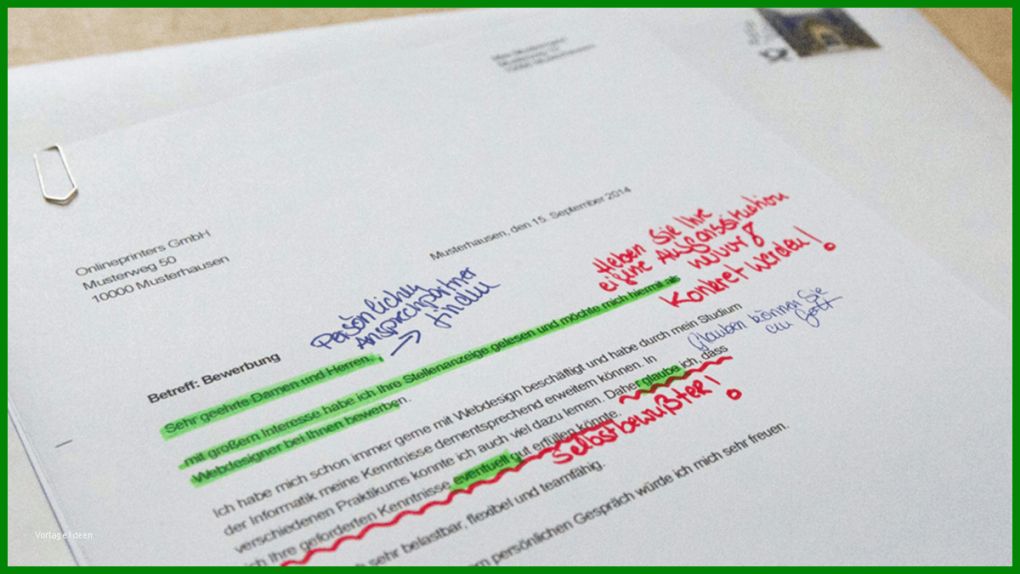 Onlineprinters GmbH
Musterweg 50
10000 Musterhausen
Musterhausen, den 15. September 2014
Heben Sie Ihre
eigene
Konkret werden!
Persönlichen
Ansprechpartner
→ finden
Betreff: Bewerbung
Sehr geehrte Damen und Herren,
mit großem Interesse habe ich Ihre Stellenanzeige gelesen und möchte mich hiermit als
Webdesigner bei Ihnen bewerben.
Glauben können Sie
an Gott
Ich habe mich schon immer gerne mit Webdesign beschäftigt und habe durch mein Studium
der Informatik meine Kenntnisse dementsprechend erweitern können. In
verschiedenen Praktikums konnte ich auch viel dazu lernen. Daher glaube ich, dass
ich Ihre geforderten Kenntnisse eventuell gut erfüllen könnte.
Selbstbewußter!
sehr belastbar, flexibel und teamfähig.
persönlichen Gespräch würde ich mich sehr freuen.
Vorlage Ideen